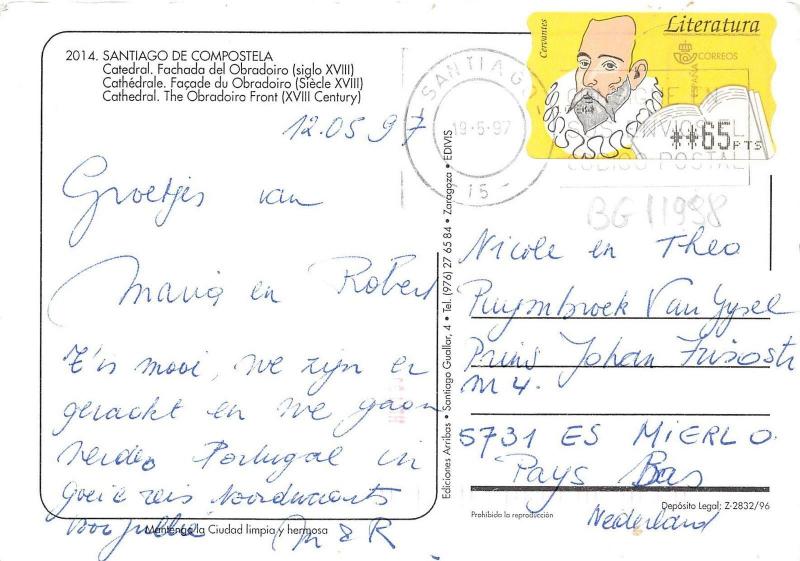 2014. SANTIAGO DE COMPOSTELA
Catedral. Fachada del Obradoiro (siglo XVIII)
Cathédrale. Façade du Obradoiro (Siècle XVIII)
Cathedral. The Obradoiro Front (XVIII Century)
12.05 97
Groetjes van
Maria en Robert
T'is mooi, we zijn er
geraakt en we gaan
verder Portugal in
Goeie reis Noordwaarts
voor jullie M & R
Mantenga la Ciudad limpia y hermosa
Ediciones Arribas • Santiago Guallar, 4 • Tel. (976) 27 65 84 • Zaragoza • EDIVIS
SANTIAGO
19-5-97
- 15 -
Cervantes
Literatura
CORREOS
ESPAÑA
**65 PTS
CODIGO POSTAL
BG 11938
Nicole en Theo
Puymbroek Van Gysel
Prins Johan Frisostr
M 4.
5731 ES MIERLO
Pays Bas
Nederland
Prohibida la reproducción
Depósito Legal: Z-2832/96